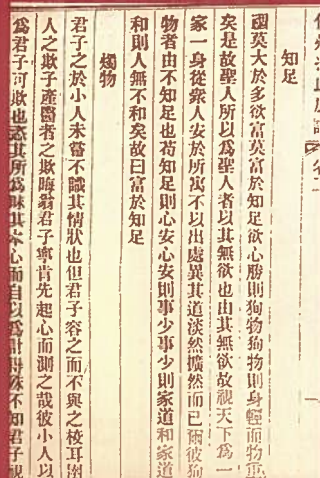 知足
國莫大於多欲富莫富於知足欲心勝則狥物狥物則身輕而物重
矣是故聖人所以爲聖人者以其無欲也由其無欲故視天下爲一
家一身從衆人安於所寓不以出處異其道淡然擴然而已爾彼狥
物者由不知足也茍知足則心安心安則事少事少則家道和家道
和則人無不和矣故曰富於知足
燭物
君子之於小人未嘗不識其情狀也但君子容之而不與之校耳
人之欺子產醫者之欺晦翁君子寧肯先起心而測之哉彼小人以
爲君子可欺也恣其所爲昧其本心而自以爲計得殊不知君子視